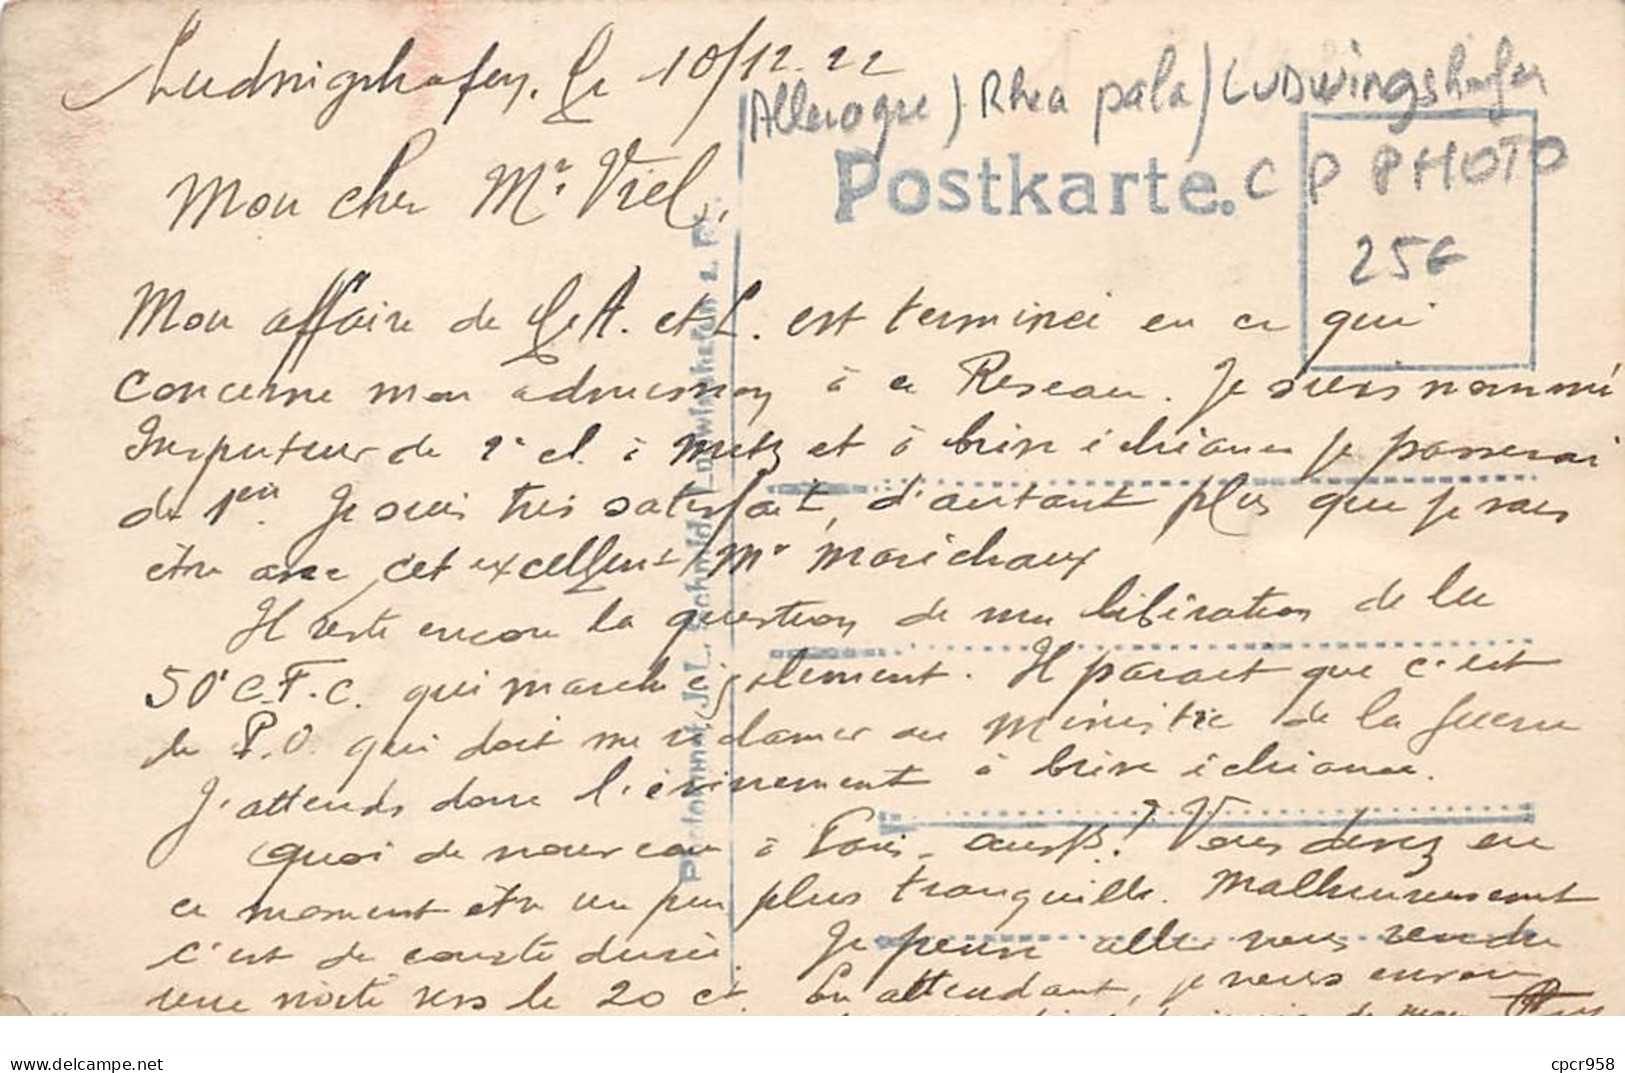 Ludwigshafen, le 10/12.22
Allemagne) Rhea pala) LUDwingshafen
Postkarte.
C P PHOTO
25€
Mon cher Mr. Viel,
Mon affaire de l'A. et L. est terminée en ce qui
concerne mon admission à ce Réseau. Je suis nommé
Inspecteur de 2e cl. à Metz et à brève échéance je passerai
de 1ere. Je suis très satisfait, d'autant plus que je vais
être avec cet excellent Mr Marichaux
Il reste encore la question de ma libération de la
50e C.F.C. qui marche également. Il parait que c'est
le P.O. qui doit me réclamer au Ministre de la Guerre
J'attends donc l'évènement à brève échéance.
Quoi de nouveau à Paris aussi? Vous devez en
ce moment être un peu plus tranquille. Malheureusement
c'est de courte durée. Je pense aller vous rendre
une visite vers le 20 ct. En attendant, je vous envoie
Photohaus J. L. Schmidt, Ludwigshafen a. R.
cpcr958